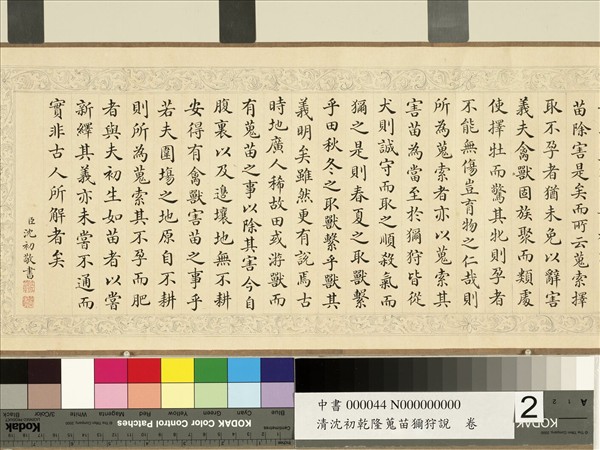 苗除害是矣而所云蒐索擇
取不孕者猶未免以辭害
義夫禽獸固族聚而類處
使擇牡而驚其牝則孕者
不能無傷豈育物之仁哉則
所為蒐索者亦以蒐索其
害苗為當至於獮狩皆從
犬則誠守而取之順殺氣而
獮之是則春夏之取獸繫
乎田秋冬之取獸繫乎獸其
義明矣雖然更有說焉古
時地廣人稀故田或游獸而
有蒐苗之事以除其害今自
腹裏以及邊壤地無不耕
安得有禽獸害苗之事乎
若夫圍場之地原自不耕
則所為蒐索其不孕而肥
者與夫初生如苗者以嘗
新繹其義亦未嘗不通而
實非古人所解者矣
臣沈初敬書
中書 000044 N000000000
清沈初乾隆蒐苗獮狩說 卷
2
Blue Cyan Green Yellow Red Magenta White 3/Color Black
Kodak KODAK Color Control Patches
A 1 2